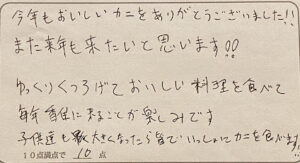 今年もおいしいカニをありがとうございました!!
また来年も来たいと思います!!
ゆっくりくつろげておいしい料理を食べて
毎年 来ることが楽しみです
子供達も 大きくなったら皆でいっしょにカニを食べます!
10点満点で 10 点